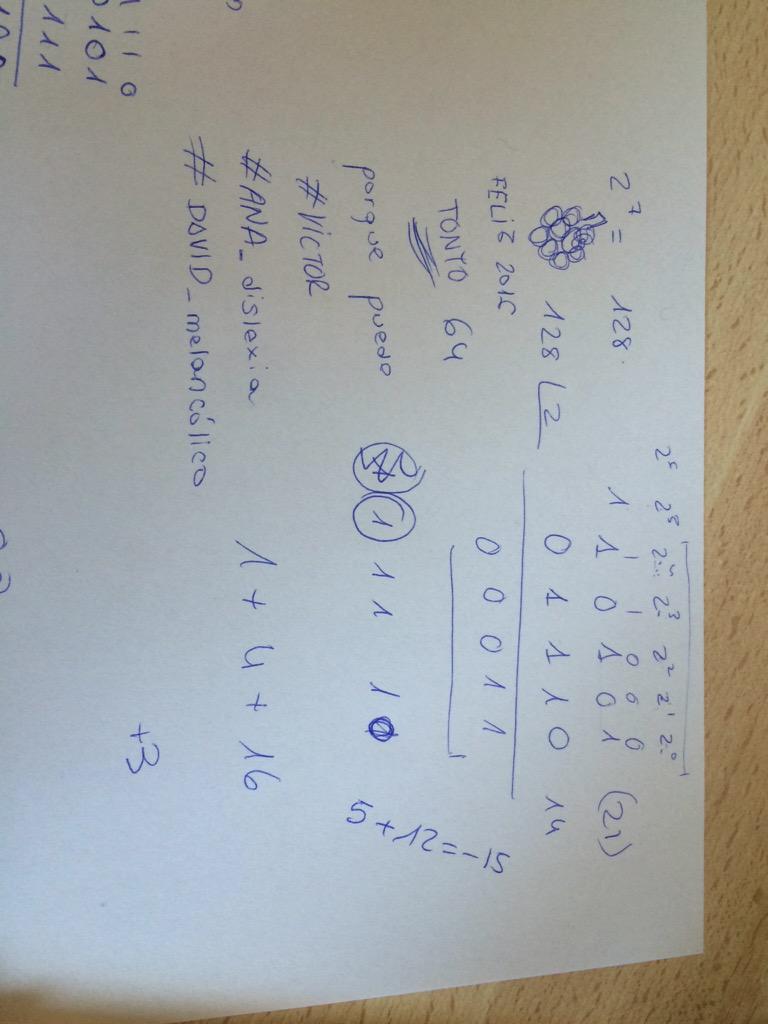 2⁷ = 128
128 ⌊2
FELIZ 2015
TONTO 64
porque puedo
#VICTOR
#ANA_dislexia
#DAVID_melancólico
2⁵ 2⁴ 2³ 2² 2¹ 2⁰
1 1 0 0 0
1 1 0 1 0 1 (21)
0 1 1 1 0 14
0 0 0 1 1
1 1 1 1
5+12=-15
1 + 4 + 16
+3
1 1 1 0
1 0 1
1 1 1